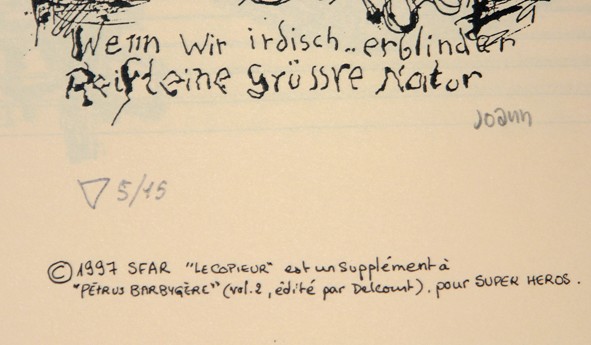 Wenn wir irdisch.. erblinden
Reift eine Grüssre Natur
Joann
▽ 5/15
© 1997 SFAR "LE COPIEUR" est un supplément à
"PETRUS BARBYGÈRE" (vol.2, édité par Delcourt). pour SUPER HEROS.